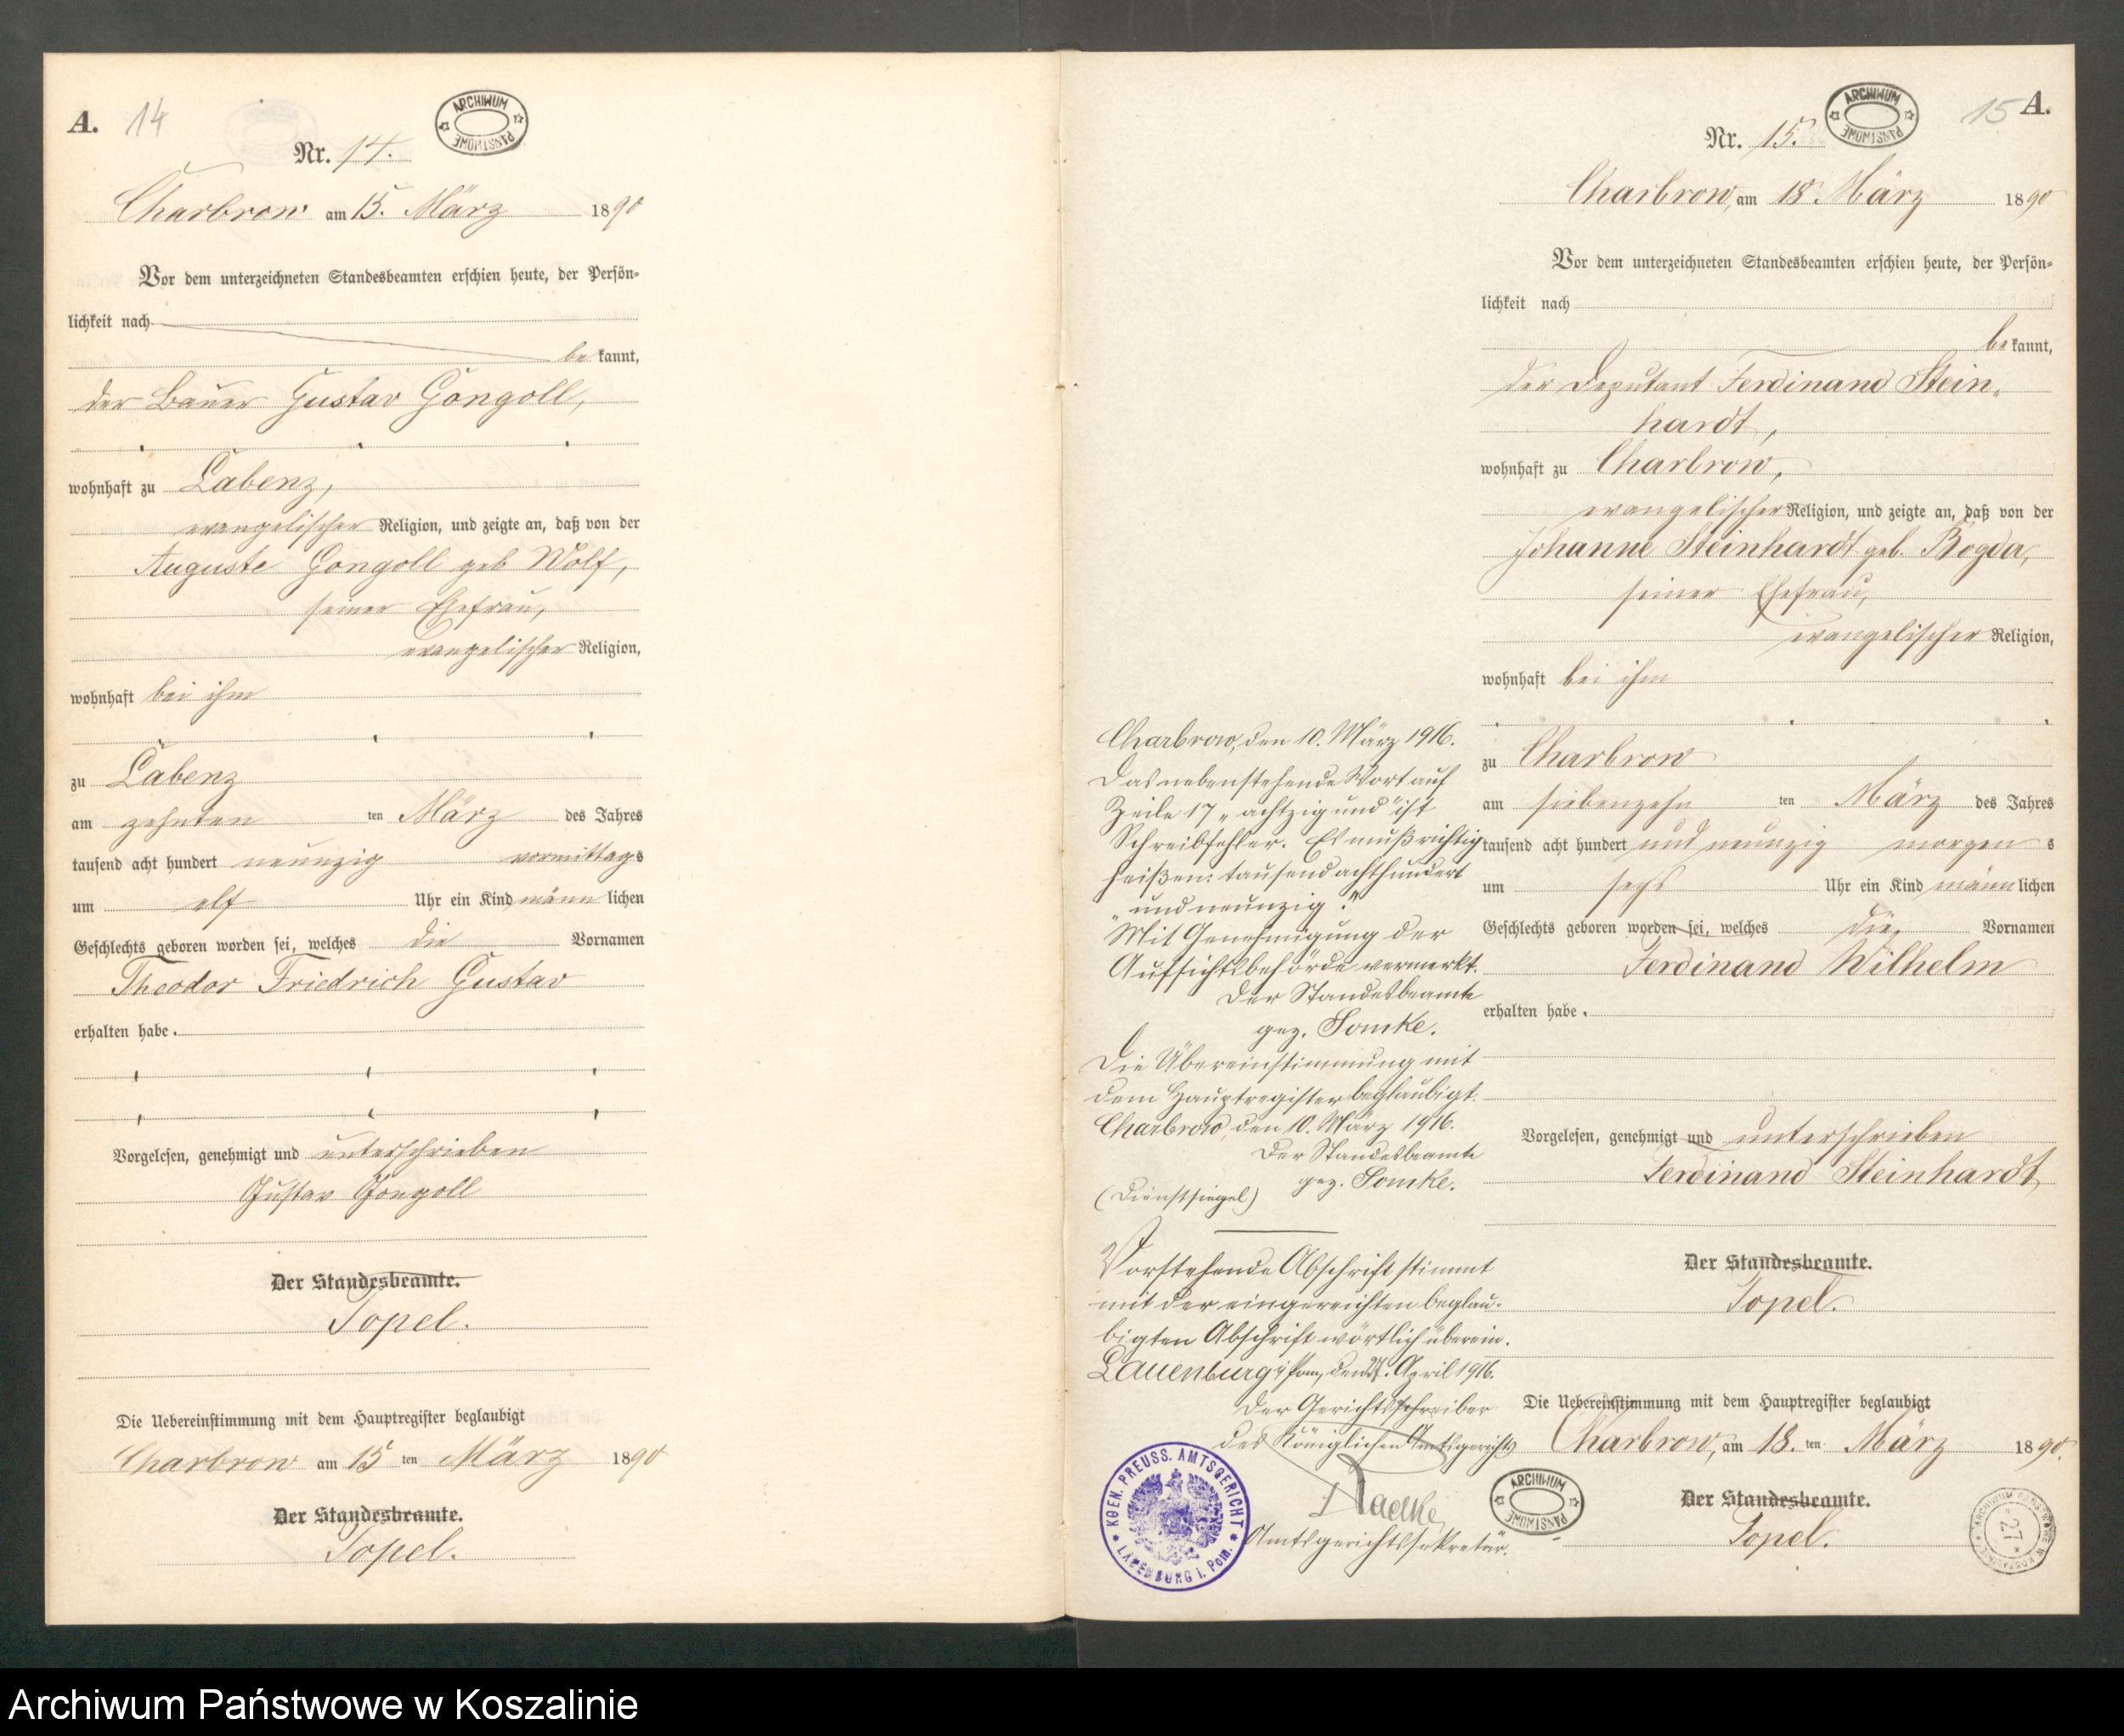 A. 14
ARCHIWUM PAŃSTWOWE
Nr. 14.
Charbrow am 15. März 1890
Vor dem unterzeichneten Standesbeamten erschien heute, der Persön-
lichkeit nach
be kannt,
der Bauer Gustav Gongoll,
wohnhaft zu Labenz,
evangelischer Religion, und zeigte an, daß von der
Auguste Gongoll geb Wolf,
seiner Ehefrau,
evangelischer Religion,
wohnhaft bei ihm
zu Labenz
am zehnten ten März des Jahres
tausend acht hundert neunzig vormittags
um elf Uhr ein Kind männ lichen
Geschlechts geboren worden sei, welches die Vornamen
Theodor Friedrich Gustav
erhalten habe.
Vorgelesen, genehmigt und unterschrieben
Gustav Gongoll
Der Standesbeamte.
Topel.
Die Uebereinstimmung mit dem Hauptregister beglaubigt
Charbrow am 15 ten März 1890
Der Standesbeamte.
Topel.
15 A.
ARCHIWUM PAŃSTWOWE
Nr. 15.
Charbrow, am 18 März 1890
Vor dem unterzeichneten Standesbeamten erschien heute, der Persön-
lichkeit nach
be kannt,
der Deputant Ferdinand Stein-
hardt,
wohnhaft zu Charbrow,
evangelischer Religion, und zeigte an, daß von der
Johanne Steinhardt geb. Bogda,
seiner Ehefrau,
evangelischer Religion,
wohnhaft bei ihm
zu Charbrow
am siebenzehn ten März des Jahres
tausend acht hundert und neunzig morgen s
um sechs Uhr ein Kind männ lichen
Geschlechts geboren worden sei, welches die Vornamen
Ferdinand Wilhelm
erhalten habe.
Vorgelesen, genehmigt und unterschrieben
Ferdinand Steinhardt
Der Standesbeamte.
Topel.
Die Uebereinstimmung mit dem Hauptregister beglaubigt
Charbrow, am 18. ten März 1890.
Der Standesbeamte.
Topel.
Charbrow, den 10. März 1916.
Das nebenstehende Wort auf
Zeile 17 „achtzig und" ist
Schreibfehler. Es muß richtig
heißen: tausend achthundert
„und neunzig."
Mit Genehmigung der
Aufsichtsbehörde vermerkt.
Der Standesbeamte
gez.
Die Übereinstimmung mit
dem Hauptregister beglaubigt.
Charbrow, den 10. März 1916.
Der Standesbeamte
gez.
(Dienstsiegel)
Vorstehende Abschrift stimmt
mit der eingereichten beglau-
bigten Abschrift wörtlich überein.
Lauenburg i/Pom, den April 1916.
Der Gerichtsschreiber
des Königlichen Amtsgerichts
Radtke,
Amtsgerichtssekretär.
KOEN. PREUSS. AMTSGERICHT * LAUENBURG i. Pom. *
ARCHIWUM PAŃSTWOWE
ARCHIWUM PAŃSTWOWE W KOSZALINIE
* 27 *
Archiwum Państwowe w Koszalinie